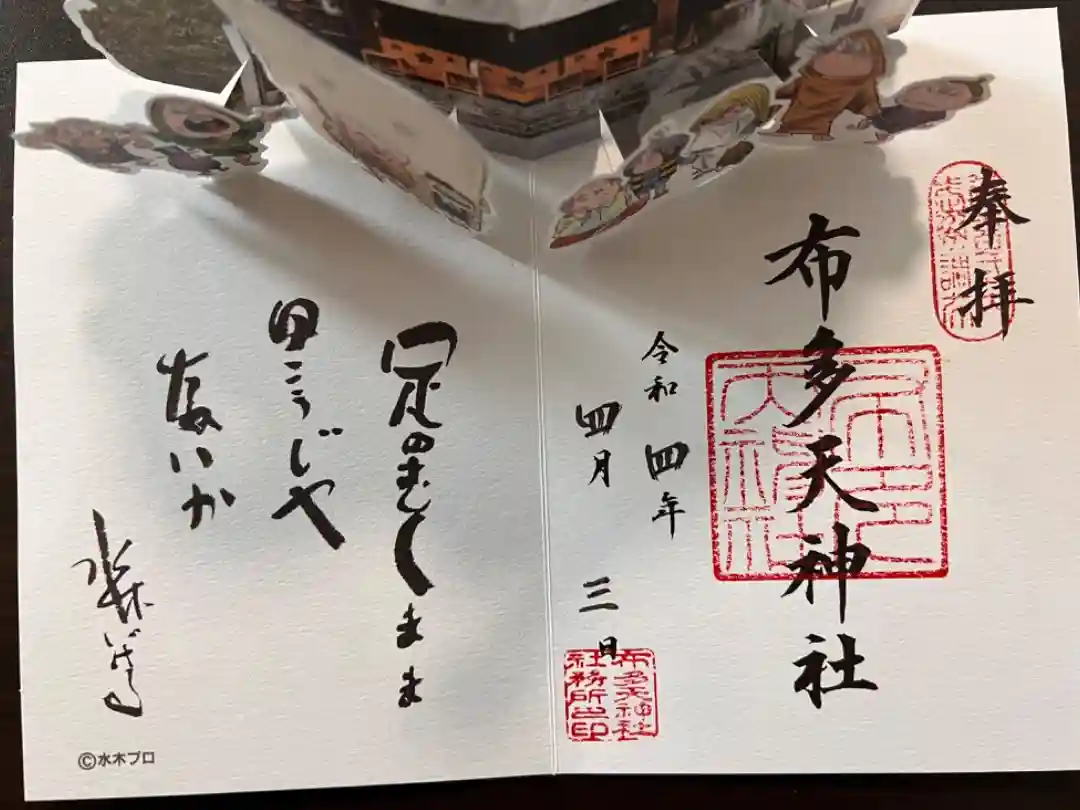 奉拝
布多天神社
布多
天神社
令和四年
四月三日
布多天神社
社務所之印
足のむくまま
ゆこうじや
ないか
水木しげる
©水木プロ